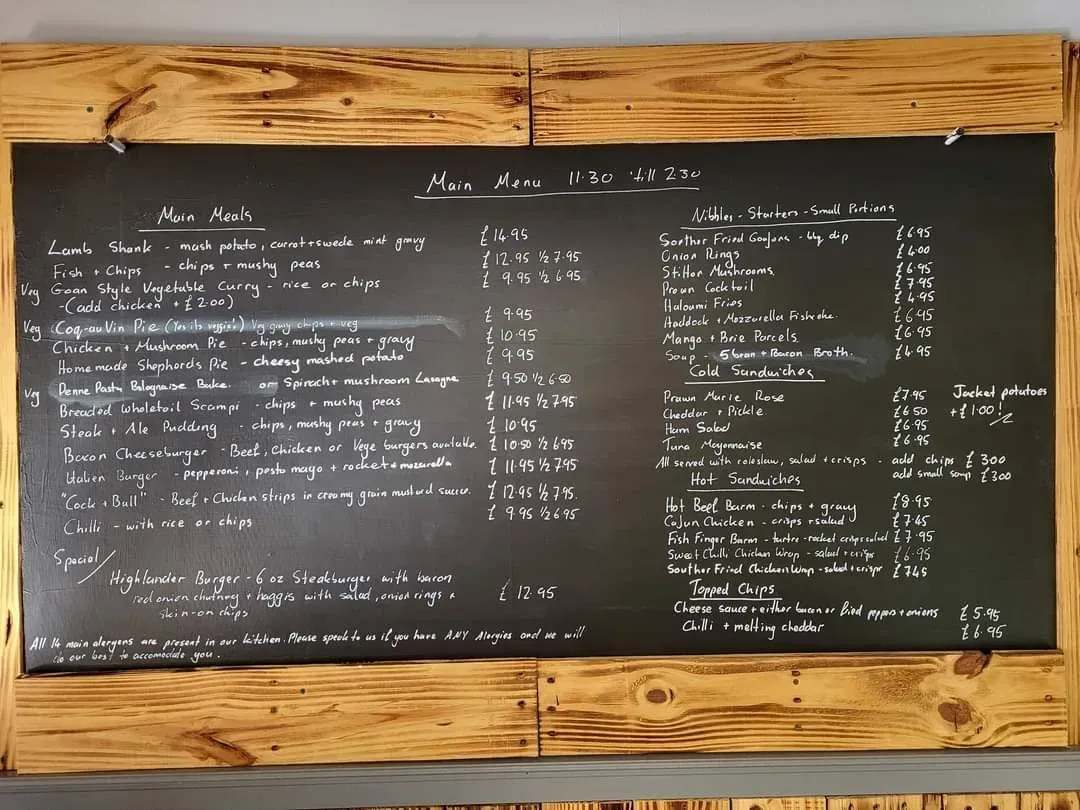 Main Menu 11.30 'till 2.30
Main Meals
Lamb Shank - mash potato, carrot + swede mint gravy £14.95
Fish + Chips - chips + mushy peas £12.95 ½ 7.95
Veg Goan Style Vegetable Curry - rice or chips £9.95 ½ 6.95
- (add chicken + £2.00)
Veg Coq-au Vin Pie (Yes its veggie!) Veg gravy chips + veg £9.95
Chicken + Mushroom Pie - chips, mushy peas + gravy £10.95
Homemade Shephords Pie - cheesy mashed potato £9.95
Veg Penne Pasta Bolognaise Bake or Spinach + mushroom Lasagne £9.50 ½ 6.50
Breaded Wholetail Scampi - chips + mushy peas £11.95 ½ 7.95
Steak + Ale Pudding - chips, mushy peas + gravy £10.95
Bacon Cheeseburger - Beef, Chicken or Vege burgers available. £10.50 ½ 6.95
Italien Burger - pepperoni, pesto mayo + rocket + mozarella £11.95 ½ 7.95
"Cock + Bull" - Beef + Chicken strips in creamy grain mustard sauce. £12.95 ½ 7.95.
Chilli - with rice or chips £9.95 ½ 6.95
Special
Highlander Burger - 6 oz Steakburger with bacon
red onion chutney + haggis with salad, onion rings + £12.95
skin-on chips
All 14 main alergens are present in our kitchen. Please speak to us if you have ANY Alergies and we will
do our best to accomodate you.
Nibbles - Starters - Small Portions
Souther Fried Goujons - bbq dip £6.95
Onion Rings £4.00
Stilton Mushrooms £6.95
Prawn Cocktail £7.95
Haloumi Fries £4.95
Haddock + Mozzarella Fishcake. £6.95
Mango + Brie Parcels £6.95
Soup - 5 bean + Bacon Broth. £4.95
Cold Sandwiches
Prawn Marie Rose £7.95
Cheddar + Pickle £6.50
Ham Salad £6.95
Tuna Mayonnaise £6.95
Jacket potatoes
+ £1.00!
All served with coleslaw, salad + crisps - add chips £3.00
add small soup £3.00
Hot Sandwiches
Hot Beef Barm - chips + gravy £8.95
Cajun Chicken - crisps + salad £7.45
Fish Finger Barm - tartre - rocket crisps salad £7.95
Sweet Chilli Chicken Wrap - salad + crisps £6.95
Souther Fried Chicken Wrap - salad + crisps £7.45
Topped Chips
Cheese sauce + either bacon or fried peppers + onions £5.95
Chilli + melting cheddar £6.95